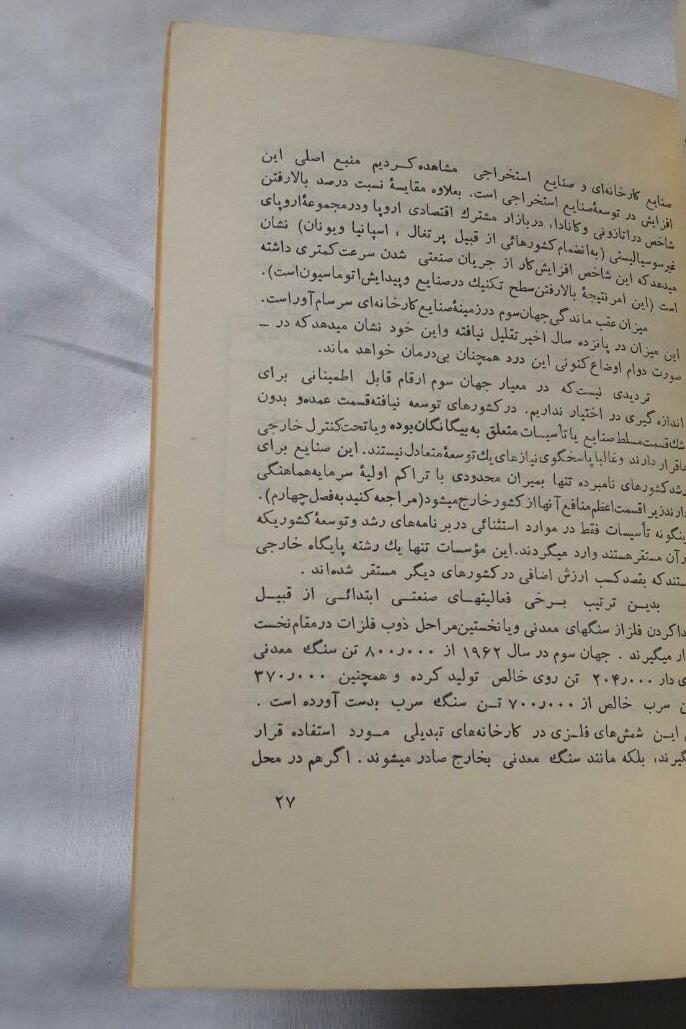 صنایع کارخانه‌ای و صنایع استخراجی مشاهده کـردیم منبع اصلی این
افزایش در توسعهٔ صنایع استخراجی است. بعلاوه مقایسهٔ نسبت درصد بالارفتن
شاخص در اتازونی وکانادا، دربازار مشترك اقتصادی اروپا ودرمجموعهٔ اروپای
غیرسوسیالیستی (به‌انضمام کشورهائی از قبیل پرتغال ، اسپانیا ویونان) نشان
میدهدکه این شاخص افزایش‌کار از جریان صنعتی شدن سرعت‌کمتری داشته
است (این امر نتیجهٔ بالارفتن‌سطح تکنیك درصنایع وپیدایش‌اتوماسیون‌است).
میزان عقب ماندگی‌جهان‌سوم درزمینهٔ‌صنایع‌کارخانه‌ای سرسام‌آوراست.
این میزان در پانزده سال اخیرتقلیل نیافته واین خود نشان میدهدکه در ــ
صورت دوام اوضاع‌کنونی این درد همچنان بی‌درمان خواهد ماند.
تردیدی نیست‌که در معیار جهان سوم ارقام قابل اطمینانی برای
اندازه‌گیری در اختیار نداریم. درکشورهای توسعه نیافته‌قسمت عمده‌و بدون
شك‌قسمت‌مسلط صنایع یا تأسیسات متعلق به‌بیگانگان‌بوده ویاتحت‌کنترل خارجی
قرار دارند وغالبا پاسخگوی نیازهای یك‌توسعهٔ‌متعادل نیستند. این صنایع برای
رشدکشورهای نامبرده تنها بمیزان محدودی با تراکم اولیهٔ سرمایه‌هماهنگی
دارندزیرا قسمت‌اعظم‌منافع آنها ازکشور خارج‌میشود(مراجعه کنیدبه‌فصل‌چهارم).
اینگونه تأسیسات فقط در موارد استثنائی در برنامه‌های رشد وتوسعهٔ کشوریکه
درآن مستقرهستند وارد میگردند. این مؤسسات تنها یك رشته پایگاه خارجی
هستندکه بقصدکسب ارزش اضافی درکشورهای دیگر مستقر شده‌اند .
بدیـن ترتیب بـرخی فعالیتهـای صنعتـی ابتدائـی از قبیـل
جداکردن فلز از سنگهای معدنی ویانخستین‌مراحل ذوب فلزات درمقام‌نخست
قرار میگیرند . جهان سوم در سال ۱۹۶۲ از ۸۰۰٫۰۰۰ تن سنگ معدنی
روی دار ۲۰۴٫۰۰۰ تن روی خالص تولید کرده و همچنین ۳۷۰٫۰۰۰
تن سرب خالص از ۷۰۰٫۰۰۰ تـن سنگ سرب بدست آورده است .
ایـن شمش‌های فلـزی در کارخانه‌های تبدیلی مـورد استفاده قرار
نمیگیرند، بلکه مانند سنگ معدنی بخارج صادر میشوند . اگرهم در محل
۲۷